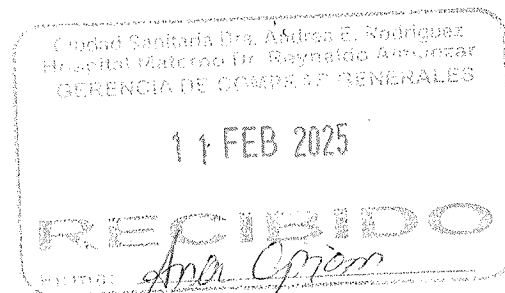 Ciudad Sanitaria Dra. Andrea E. Rodriguez
Hospital Materno Dr. Reynaldo Almanzar
GERENCIA DE COMPRAS GENERALES
11 FEB 2025
RECIBIDO
FIRMA: Ana